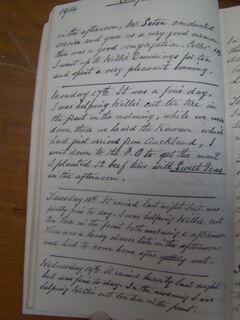 1914
in the afternoon, Mr Seton conducted
service and gave us a very good sermon
there was a good congregation. Collec
I went up to Willie Cummings for tea
and spent a very pleasant evening.
Monday 17th It was a fine day.
I was helping Willie cut tea tree in
the front in the morning, while we were
down there we heard the Kawau which
had just arrived from Auckland, I
went down to the P.O to get the mail
I planted 12 Beef tins with Sweet Peas
in the afternoon.
Tuesday 18th It rained last night but was
pretty fine to day. I was helping Willie cut
tea tree in the front both morning & afternoon
There was a heavy shower late in the afternoon
and had to come home after getting wet.
Wednesday 19th It rained heavily last night
but was fine to day. In the morning I was
helping Willie cut tea tree in the front.